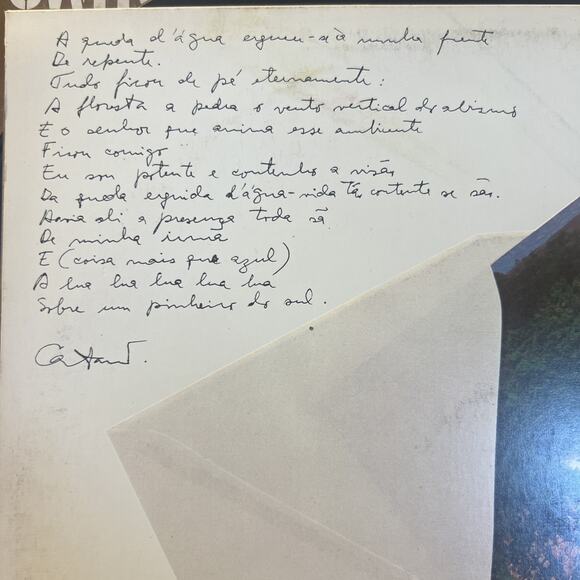 A queda d'água ergueu-se à minha frente
De repente.
Tudo ficou de pé eternamente:
A floresta a pedra o vento vertical do abismo
E o senhor que anima esse ambiente
Ficou comigo
Eu sou potente e contenho a visão
Da queda erguida d'água-vida tão contente se são.
Havia ali a presença toda sã
De minha irmã
E (coisa mais que azul)
A lua lua lua lua lua
Sobre um pinheiro do sul.
Caetano.